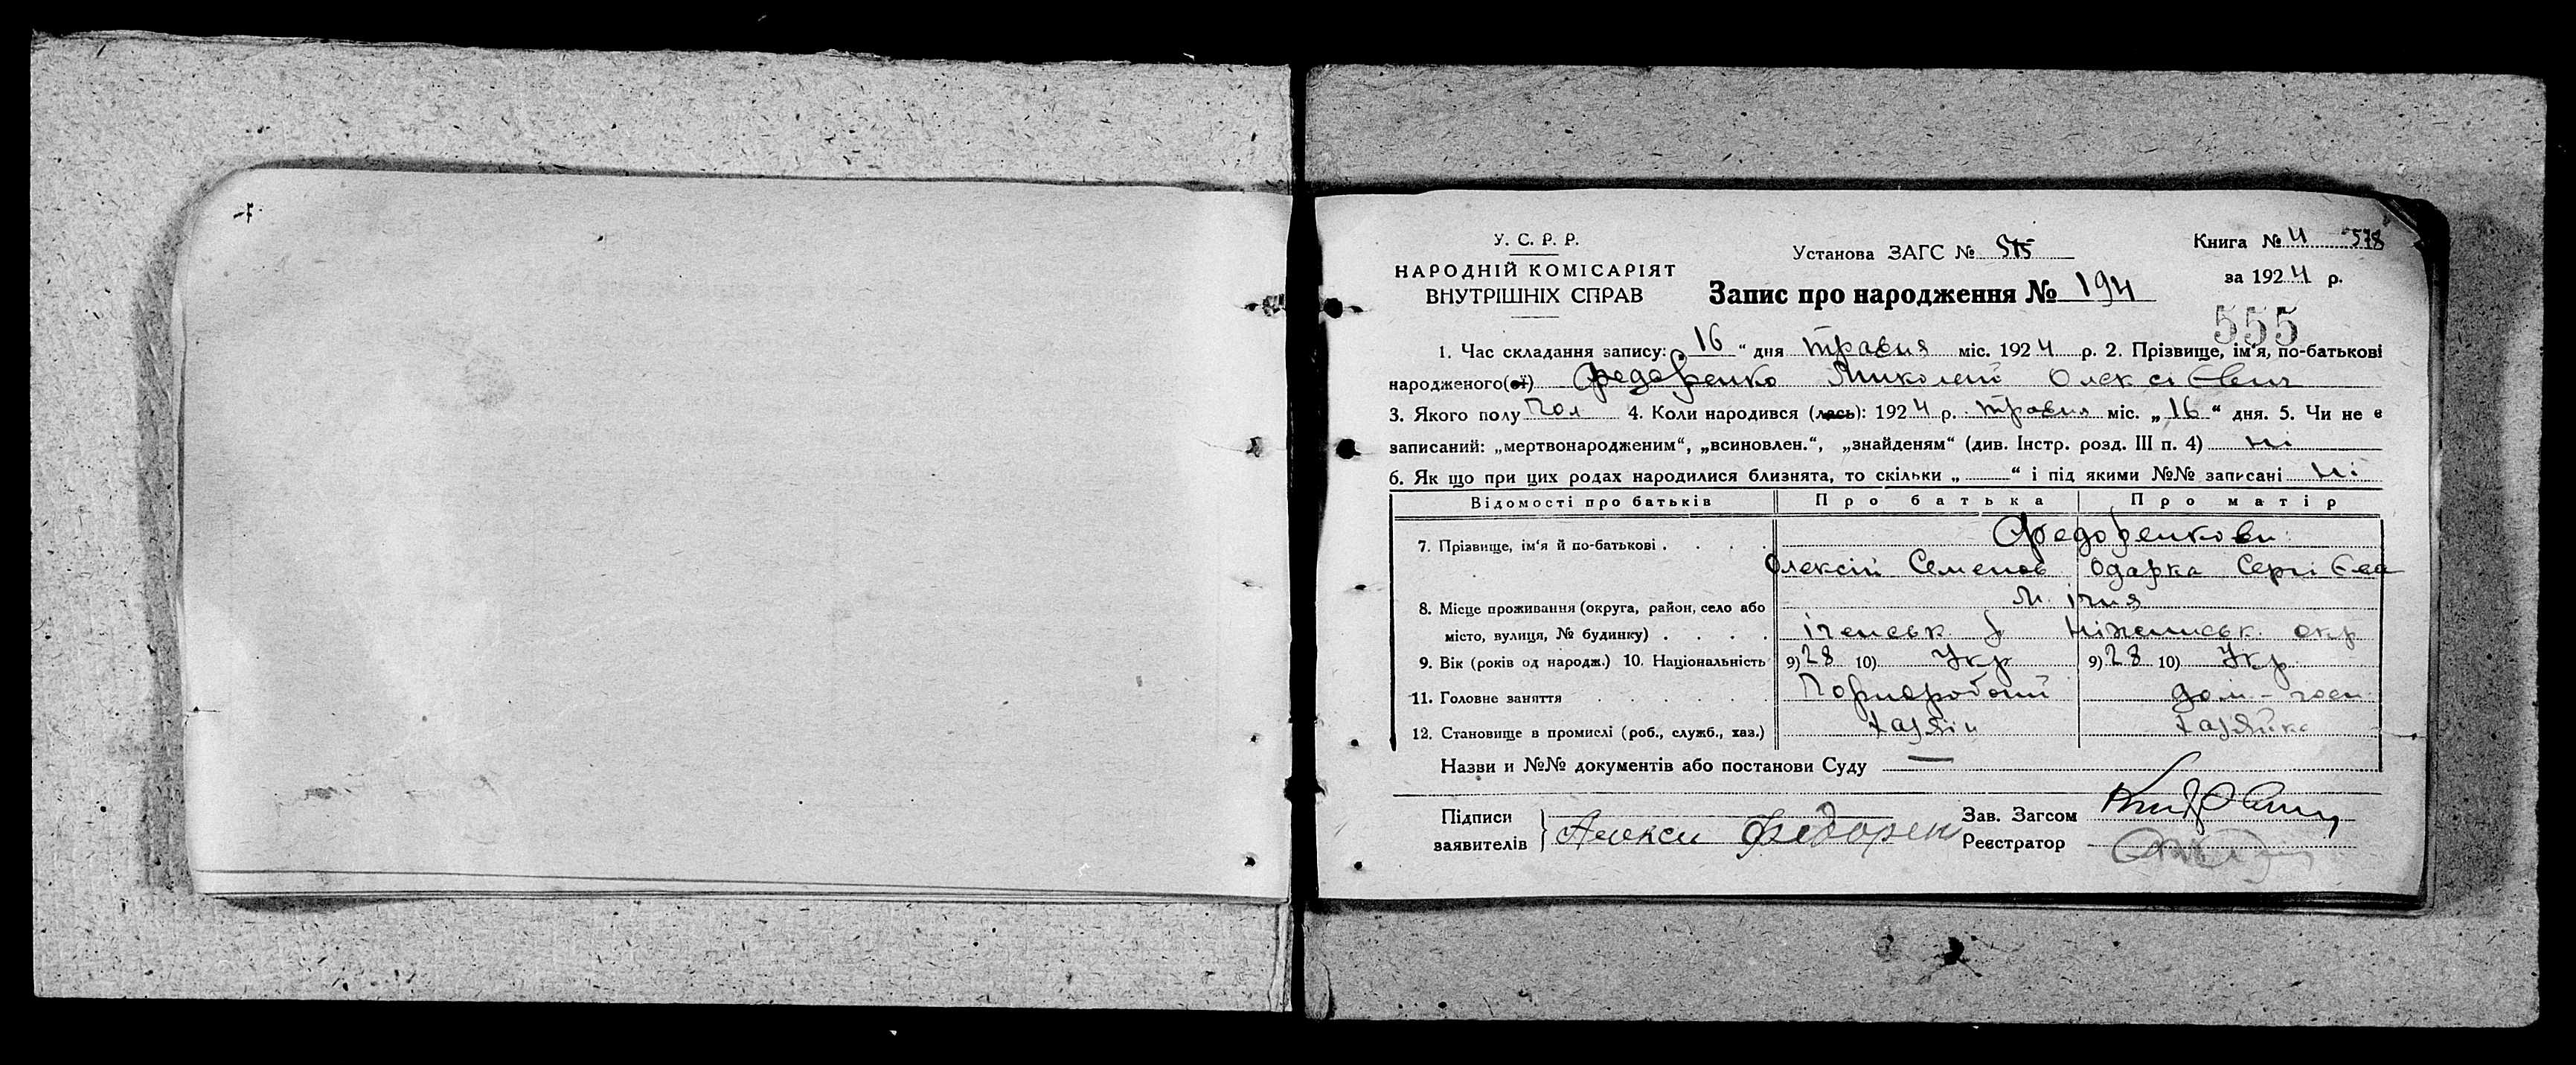 У. С. Р. Р.
НАРОДНІЙ КОМІСАРІЯТ
ВНУТРІШНІХ СПРАВ
Установа ЗАГС № 515
Книга № 4 578
за 1924 р.
Запис про народження № 194
555
1. Час складання запису: 16 " дня травня міс. 1924 р. 2. Прізвище, ім'я, по-батькові
народженого(ої) Федоренко Миколай Олексієвич
3. Якого полу чол 4. Коли народився (лась): 1924 р. травня міс. „16" дня. 5. Чи не є
записаний: „мертвонародженим", „всиновлен.", „знайденям" (див. Інстр. розд. III п. 4) ні
6. Як що при цих родах народилися близнята, то скільки „ " і під якими №№ записані ні
Відомості про батьків Про батька Про матір
7. Прізвище, ім'я й по-батькові . . . . Федоренкови
Олексій Семенов Одарка Сергієва
8. Місце проживання (округа, район, село або м. Ічня
місто, вулиця, № будинку) . . . . Іченськ р Ніженськ. окр
9. Вік (років од народж.) 10. Національність 9) 28 10) Укр 9) 28 10) Укр
11. Головне заняття . . . . . . Чорноробочий дом - госп
12. Становище в промислі (роб., служб., хаз.) хазяїн хазяйка
Назви и №№ документів або постанови Суду —
Підписи
заявителів } Алекси Федорен
Зав. Загсом
Реєстратор